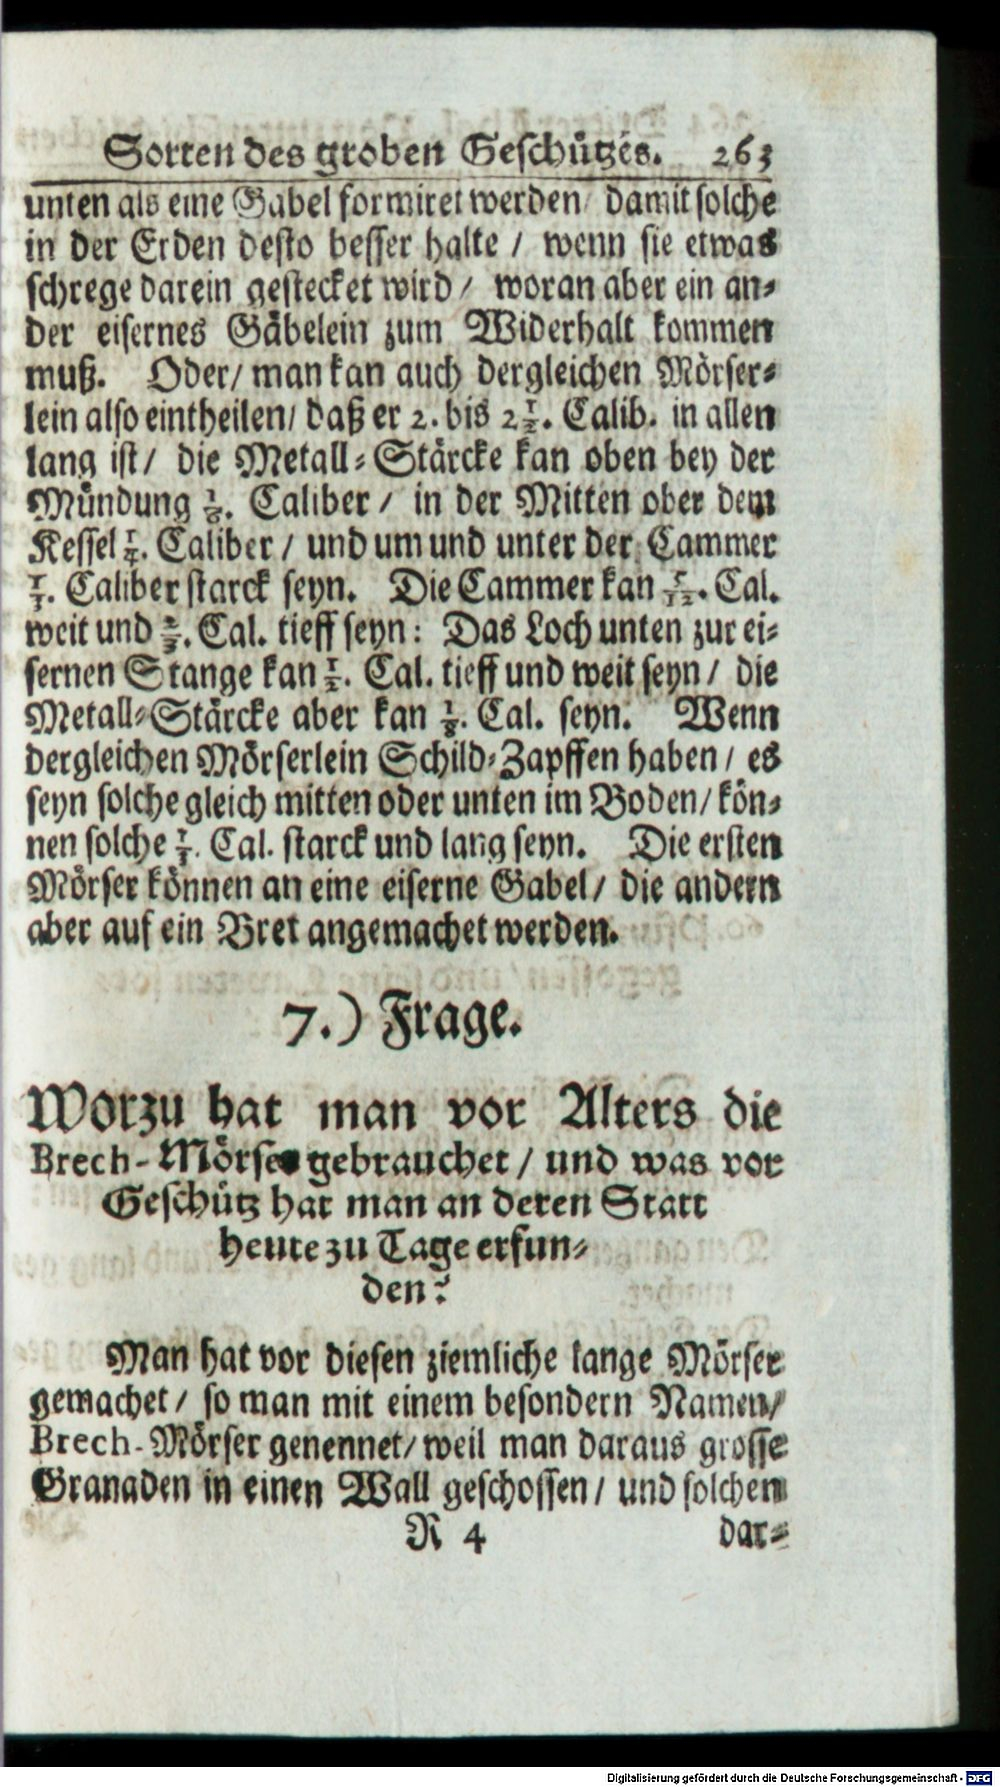 Sorten des groben Geschützes. 263
unten als eine Gabel formiret werden/ damit solche
in der Erden desto besser halte / wenn sie etwas
schrege darein gestecket wird / woran aber ein an-
der eisernes Gäbelein zum Widerhalt kommen
muß. Oder/ man kan auch dergleichen Mörser-
lein also eintheilen/ daß er 2. bis 2½. Calib. in allen
lang ist/ die Metall-Stärcke kan oben bey der
Mündung ⅙. Caliber / in der Mitten ober dem
Kessel ¼. Caliber / und um und unter der Cammer
⅓. Caliber starck seyn. Die Cammer kan 5/12. Cal.
weit und ⅔. Cal. tieff seyn: Das Loch unten zur ei-
sernen Stange kan ½. Cal. tieff und weit seyn / die
Metall-Stärcke aber kan ⅛. Cal. seyn. Wenn
dergleichen Mörserlein Schild-Zapffen haben / es
seyn solche gleich mitten oder unten im Boden/ kön-
nen solche ⅓. Cal. starck und lang seyn. Die ersten
Mörser können an eine eiserne Gabel/ die andern
aber auf ein Bret angemachet werden.
7.) Frage.
Worzu hat man vor Alters die
Brech-Mörser gebrauchet / und was vor
Geschütz hat man an deren Statt
heute zu Tage erfun-
den?
Man hat vor diesen ziemliche lange Mörser
gemachet / so man mit einem besondern Namen/
Brech-Mörser genennet/ weil man daraus grosse
Granaden in einen Wall geschossen / und solchen
R 4 dar-
Digitalisierung gefördert durch die Deutsche Forschungsgemeinschaft - DFG